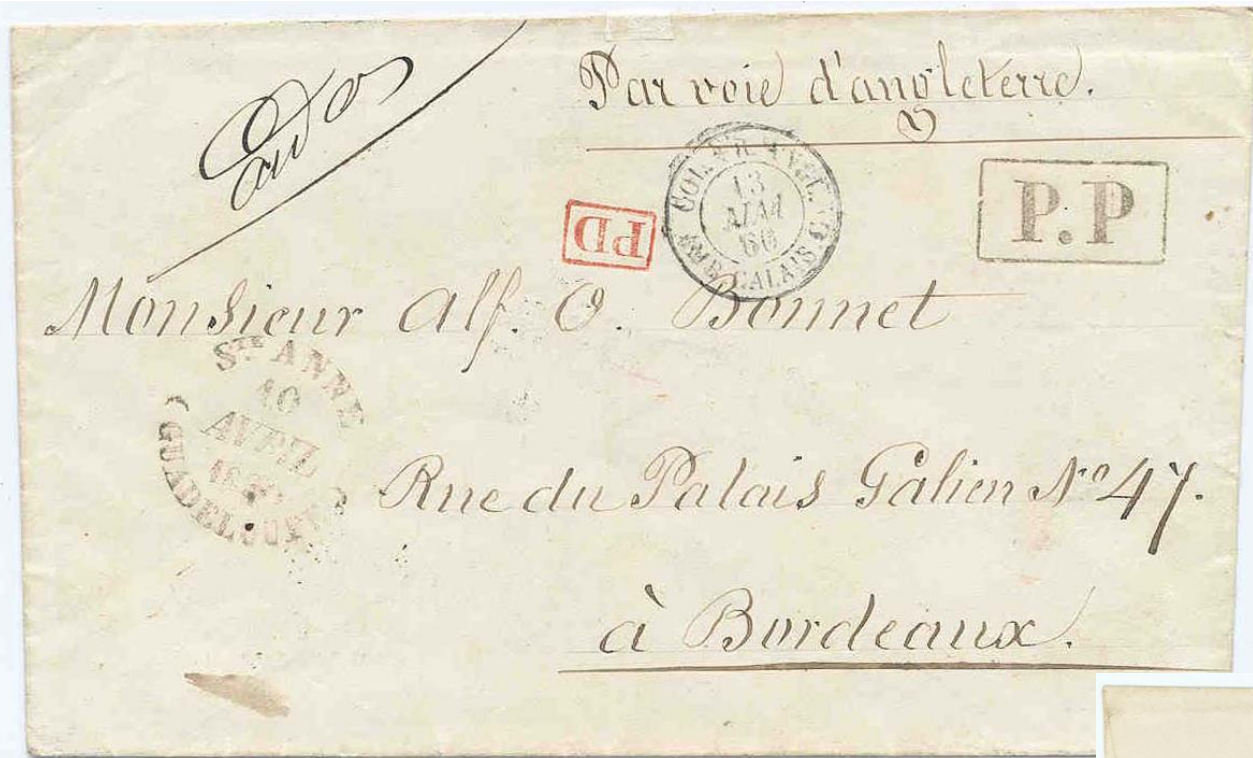 Par voie d'angleterre.
COL. FR. ANGL.
13
MAI
66
AMB. CALAIS G
PD
P.P
Monsieur Alf. O. Bonnet
STE ANNE
10
AVRIL
GUADELOUPE
Rue du Palais Galien No 47.
à Bordeaux.